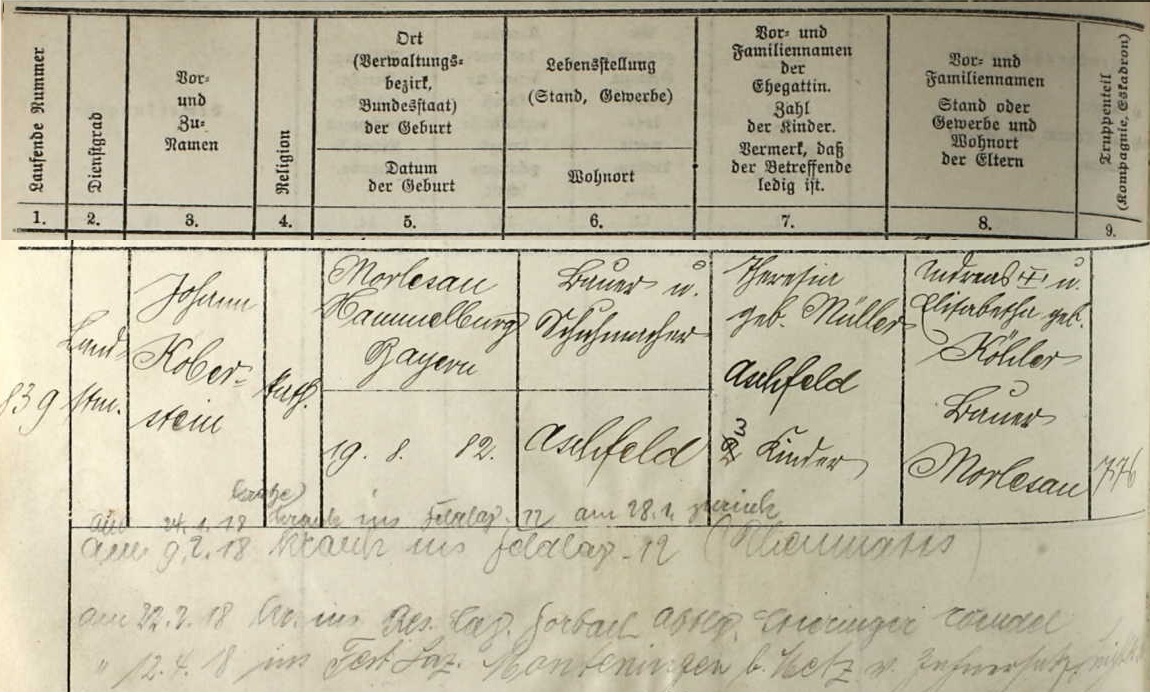 Laufende Nummer
Dienstgrad
Vor-
und
Zu-
Namen
Religion
Ort
(Verwaltungs-
bezirk,
Bundesstaat)
der Geburt
Datum
der Geburt
Lebensstellung
(Stand, Gewerbe)
Wohnort
Vor- und
Familiennamen
der
Ehegattin.
Zahl
der Kinder.
Vermerk, daß
der Betreffende
ledig ist.
Vor- und
Familiennamen
Stand oder
Gewerbe und
Wohnort
der Eltern
Truppenteil
(Kompagnie, Eskadron)
1. 2. 3. 4. 5. 6. 7. 8. 9.
839
Land-
stm.
Johann
Kober-
stein
kath.
Morlesau
Hammelburg
Bayern
19. 8. 82.
Bauer u.
Schuhmacher
Aschfeld
Theresia
geb. Müller
Aschfeld
3 Kinder
Andreas u.
Elisabetha geb.
Köhler
Bauer
Morlesau
776
24. 1. 18 ins Feldlaz. am 28. 1. zurück
am 9. 2. 18 krank ins Feldlaz. 12
am 22. 3. 18 ins Res. Laz. Forbach
" 12. 4. 18 ins Fest. Laz. Monteningen b. Metz v.